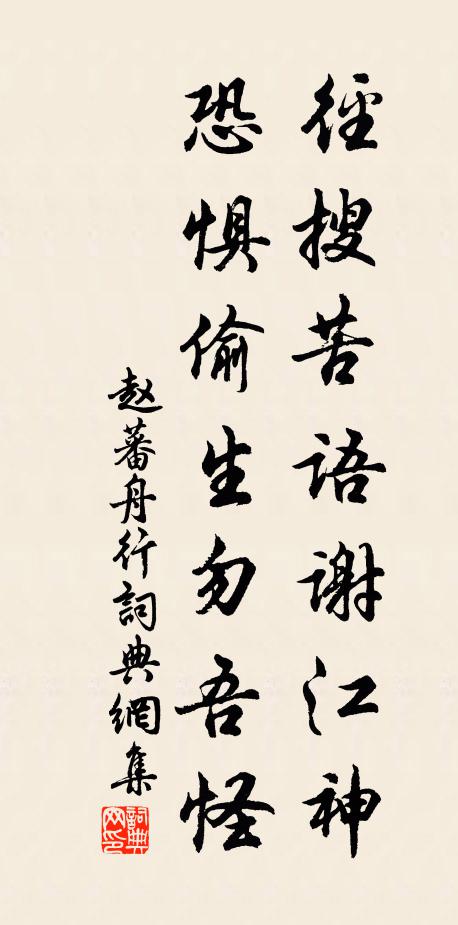 徑搜苦語謝江神
恐惧偷生勿吾怪
赵蕃舟行詞典網集
詞典网印